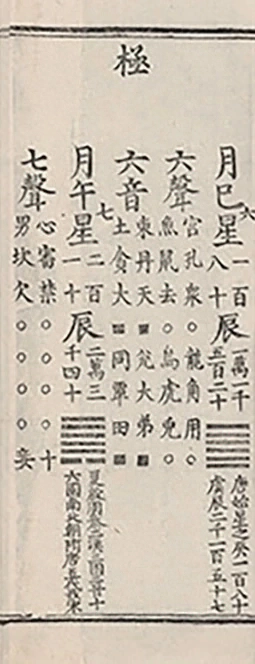 極
月巳六
星一百八十
辰
五百二十
唐始星之癸一百八十
虞辰二千一百五十七
六聲
宮孔衆○龍角用○
魚鼠去○烏虎兔○
六音
東丹天■兌大弟■
土貪大■同覃田■
月午七
星二百一十
辰二萬三千四十
夏殷周秦兩漢兩晉十
六國南北朝隋唐五代宋
七聲
心審禁○○○○十
男坎欠○○○○妾